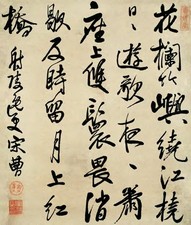 花欄竹嶼繞江橈
日〻遊歌夜〻簫
座上雙鬟畏消
歇及時留月上紅
橋 射陵逸史宋曹